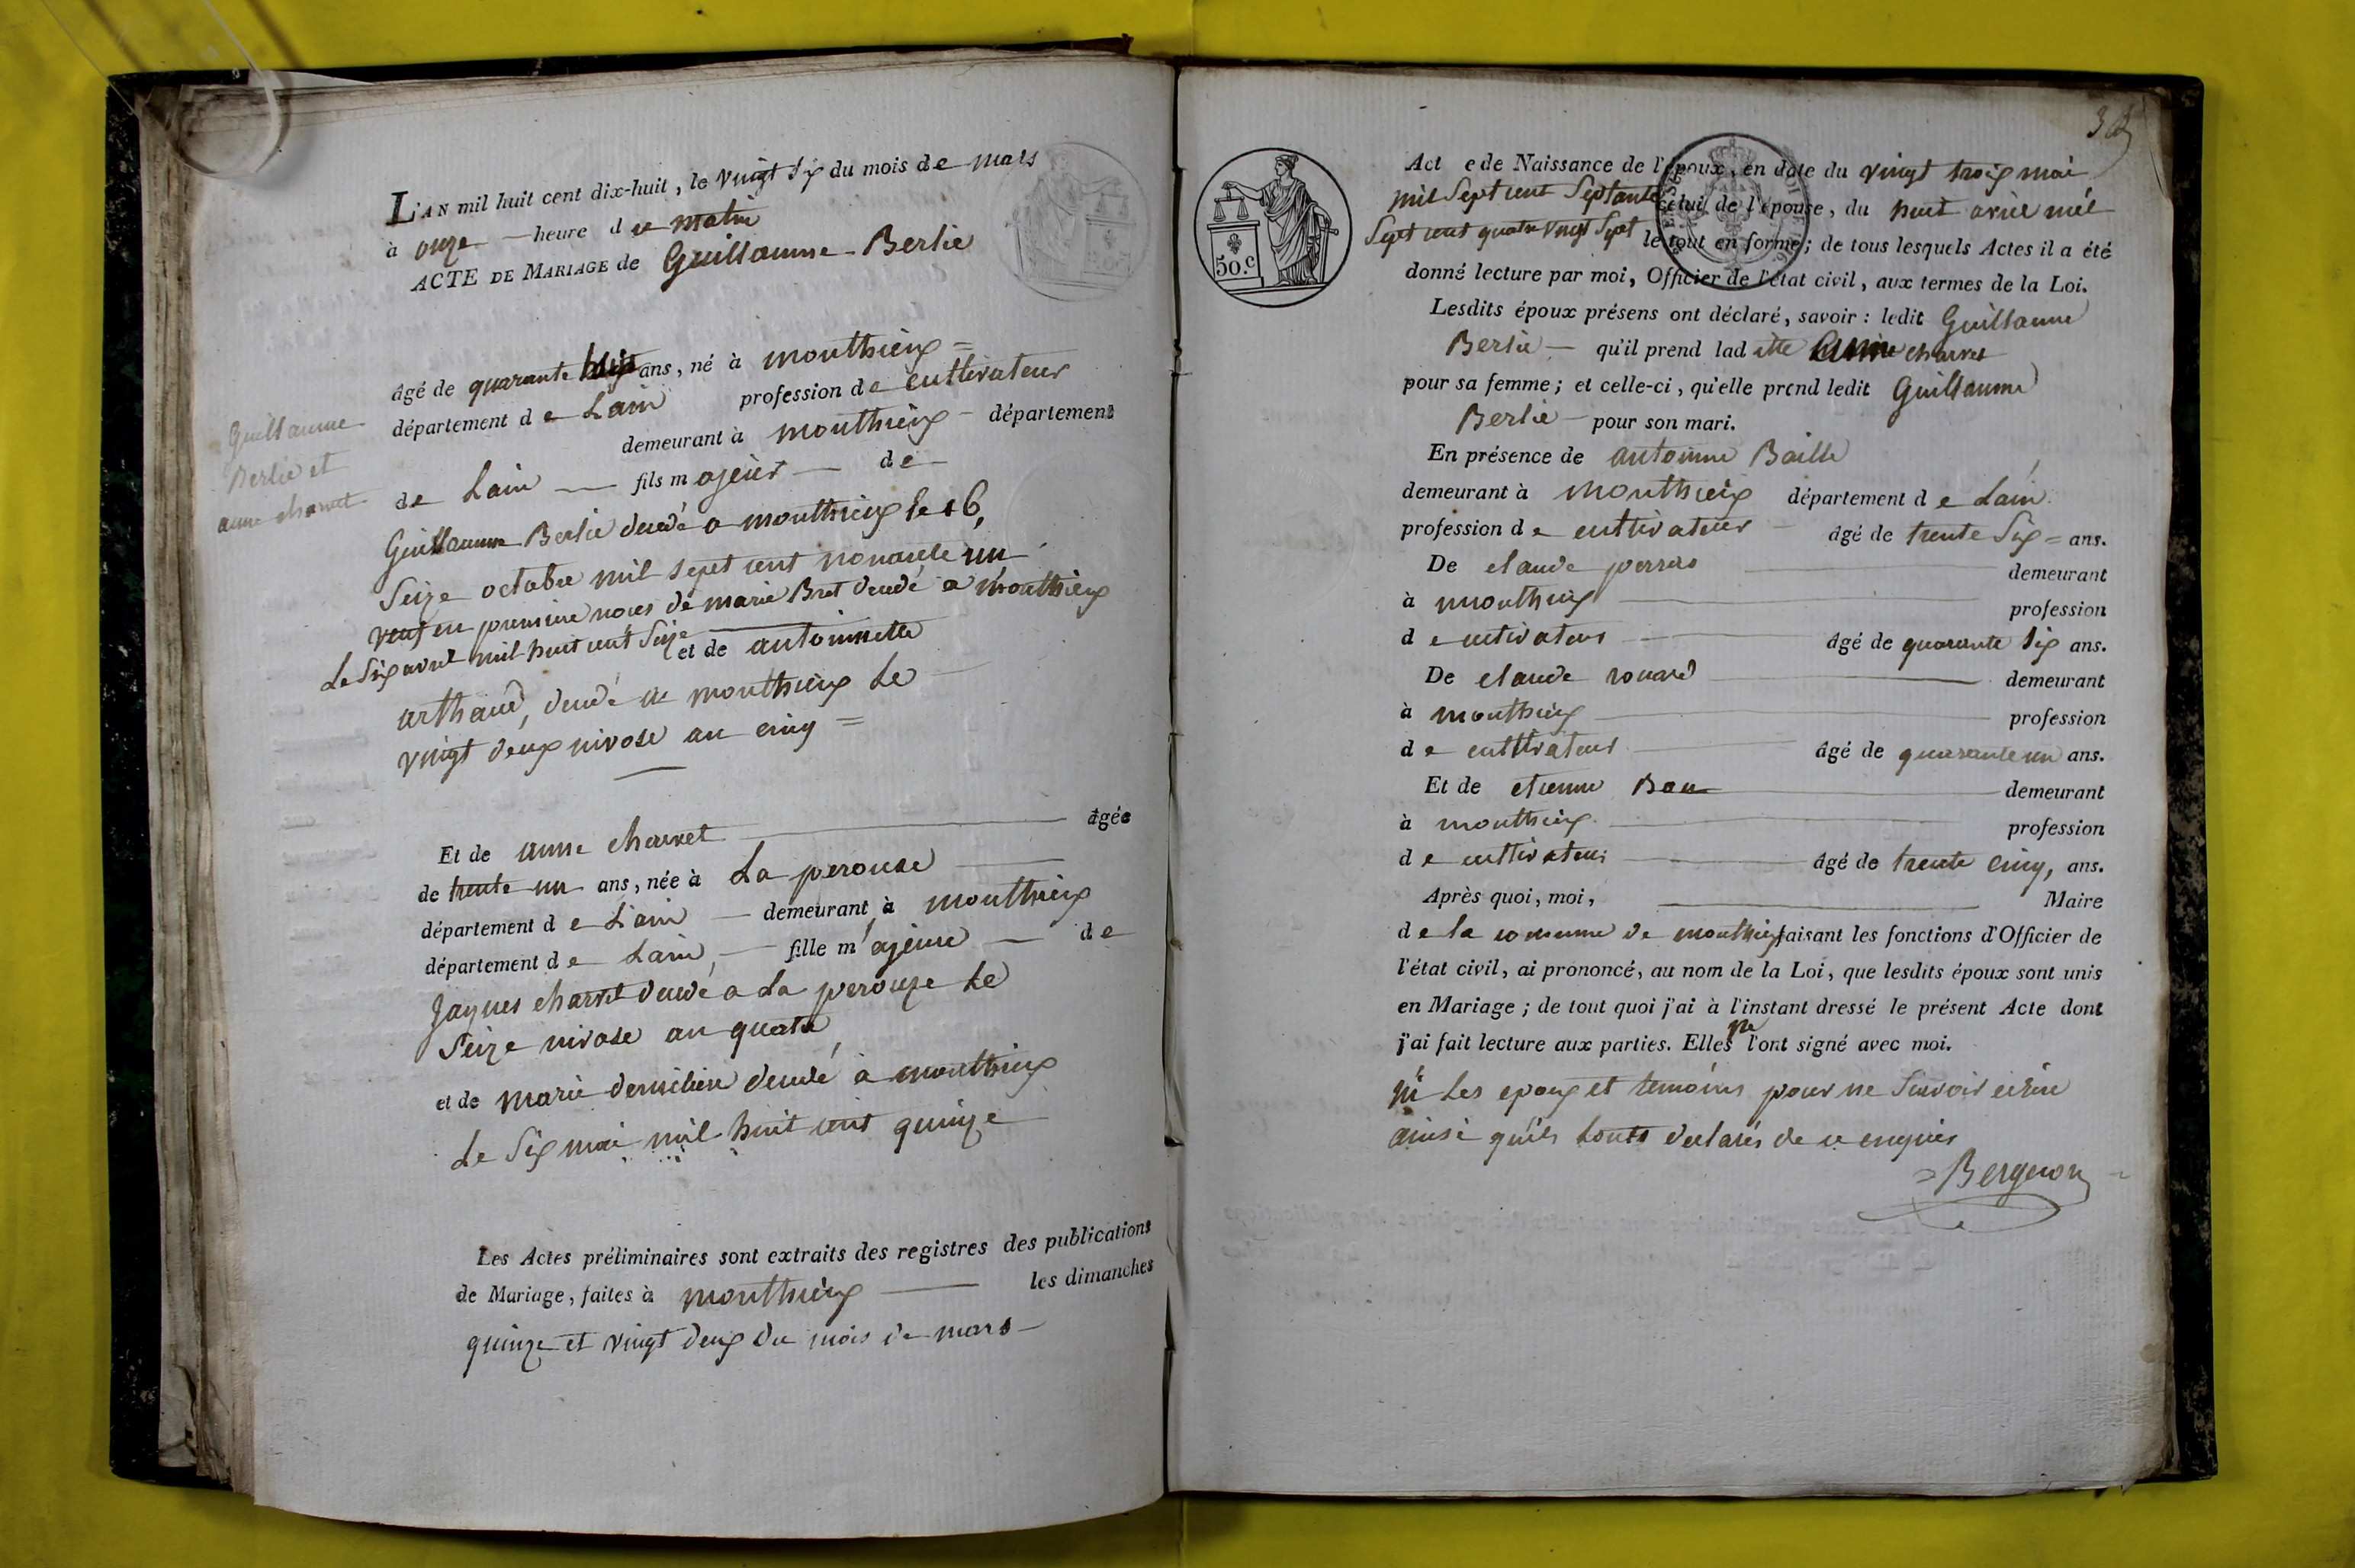 L'AN mil huit cent dix-huit, le vingt six du mois de mars
à onze heure du matin
ACTE DE MARIAGE de Guillaume Berlie
âgé de quarante ans, né à monthieux =
département de Lain profession de cultivateur
demeurant à monthieux département
de Lain fils majeur de
Guillaume Berlie décédé a monthieux le 16,
Seize octobre mil sept cent nonante un
veuf en premiere noces de marie Bret décédé a monthieux
Le Six avril mil huit cent Seize
et de antoinette
arthaud, décédé a monthieux Le
vingt deux nivose an cinq =
Guillaume
Berlie et
anne charvet
Et de anne charvet âgée
de trente un ans, née à La perouse
département de Lain demeurant à monthieux
département de Lain, fille majeure de
Jaques charvet décédé a La perouze Le
Seize nivose an quatre
et de marie décédé à monthieux
Le Six mai mil huit cent quinze
Les Actes préliminaires sont extraits des registres des publications
de Mariage, faites à monthieux les dimanches
quinze et vingt deux du mois de mars
50.c
Acte de Naissance de l'époux, en date du vingt trois mai
mil Sept cent Septante celui de l'épouse, du huit avril mil
Sept cent quatre vingt Sept le tout en forme; de tous lesquels Actes il a été
donné lecture par moi, Officier de l'état civil, aux termes de la Loi.
Lesdits époux présens ont déclaré, savoir: ledit Guillaume
Berlie qu'il prend ladite Anne charvet
pour sa femme; et celle-ci, qu'elle prend ledit Guillaume
Berlie pour son mari.
En présence de antoinne Baille
demeurant à Monthieux département de Lain
profession de cultivateur âgé de trente Six = ans.
De claude perras demeurant
à monthieux profession
de cultivateur âgé de quarante Six ans.
De claude rouard demeurant
à monthieux profession
de cultivateur âgé de quarante un ans.
Et de etienne Bon demeurant
à monthieux profession
de cultivateur âgé de trente cinq, ans.
Après quoi, moi, Maire
de la commune de monthieux faisant les fonctions d'Officier de
l'état civil, ai prononcé, au nom de la Loi, que lesdits époux sont unis
en Mariage; de tout quoi j'ai à l'instant dressé le présent Acte dont
j'ai fait lecture aux parties. Elles ne l'ont signé avec moi.
ni Les epoux et temoins pour ne Savoir ecrire
ainsi qu'ils Lonts declarés de ce enquis
Bergeron